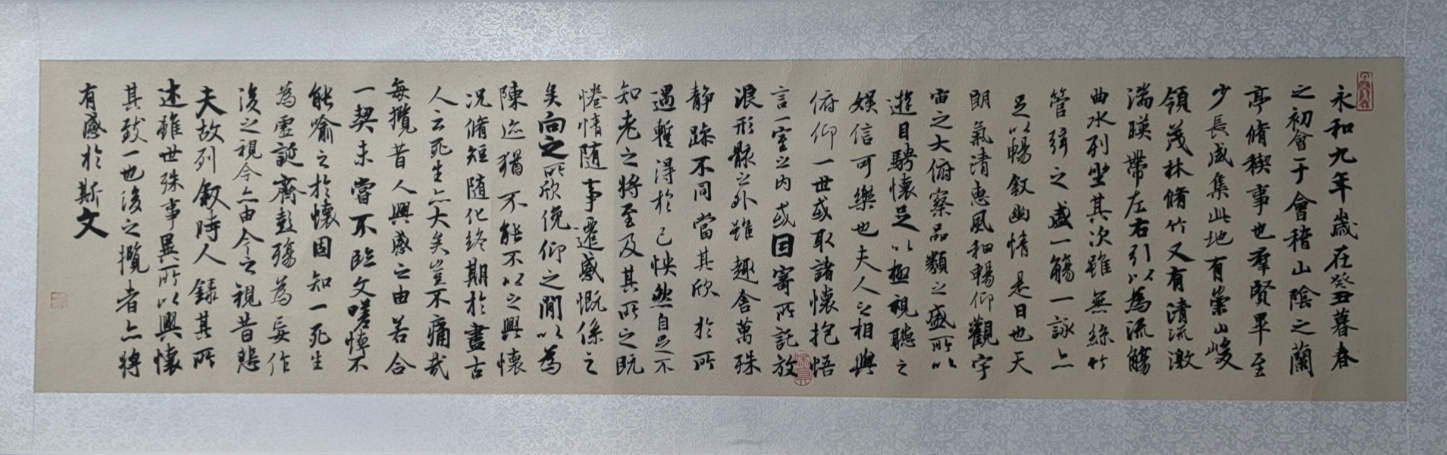 永和九年歲在癸丑暮春
之初會于會稽山陰之蘭
亭脩稧事也群賢畢至
少長咸集此地有崇山峻
領茂林脩竹又有清流激
湍暎帶左右引以為流觴
曲水列坐其次雖無絲竹
管弦之盛一觴一詠亦
足以暢叙幽情是日也天
朗氣清惠風和暢仰觀宇
宙之大俯察品類之盛所以
遊目騁懷足以極視聽之
娛信可樂也夫人之相與
俯仰一世或取諸懷抱悟
言一室之内或因寄所託放
浪形骸之外雖趣舍萬殊
靜躁不同當其欣於所
遇暫得於己怏然自足不
知老之將至及其所之既
惓情隨事遷感慨係之
矣向之所欣俛仰之閒以為
陳迹猶不能不以之興懷
况脩短隨化終期於盡古
人云死生亦大矣豈不痛哉
每攬昔人興感之由若合
一契未嘗不臨文嗟悼不
能喻之於懷固知一死生
為虛誕齊彭殤為妄作
後之視今亦由今之視昔悲
夫故列叙時人録其所
述雖世殊事異所以興懷
其致一也後之攬者亦將
有感於斯文